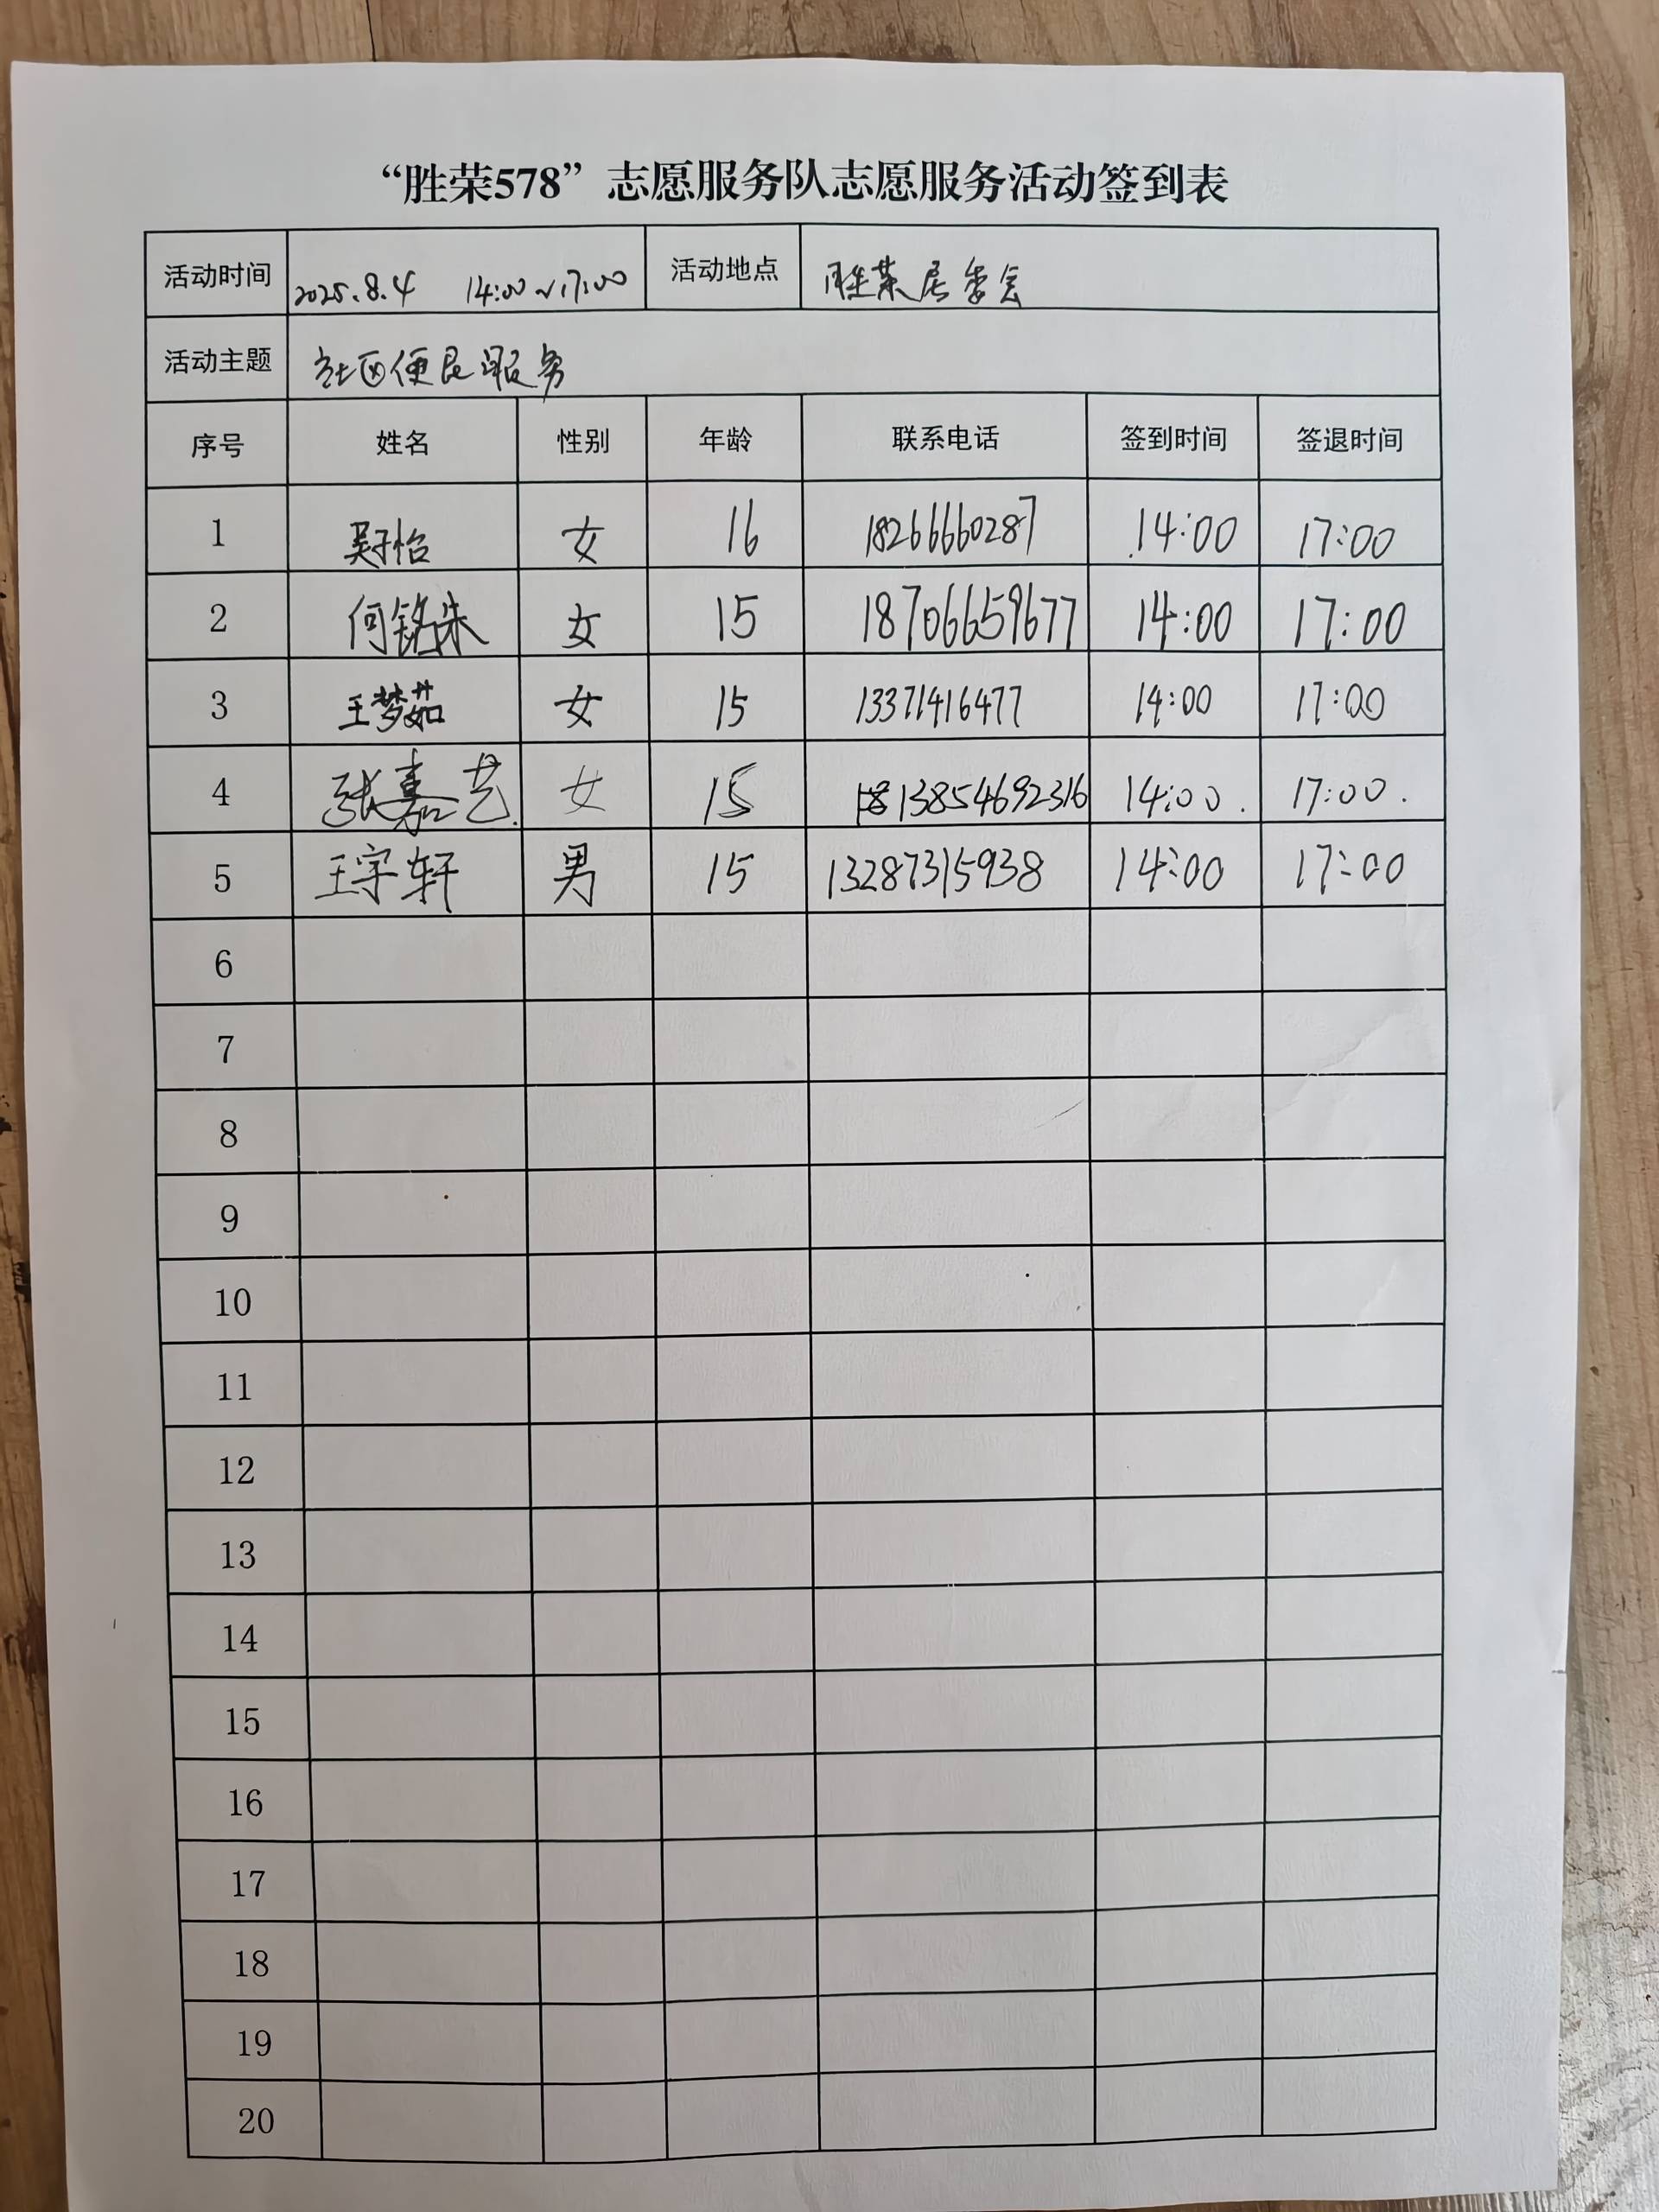 “胜荣578”志愿服务队志愿服务活动签到表
活动时间 2025.8.4 14:00~17:00 活动地点 胜荣居委会
活动主题 社区便民服务
序号 姓名 性别 年龄 联系电话 签到时间 签退时间
1 吴子怡 女 16 18266660287 14:00 17:00
2 何铭朱 女 15 18706659677 14:00 17:00
3 王梦茹 女 15 13371416477 14:00 17:00
4 张嘉艺. 女 15 13854692316 14:00. 17:00.
5 王宇轩 男 15 13287315938 14:00 17:00
6
7
8
9
10
11
12
13
14
15
16
17
18
19
20